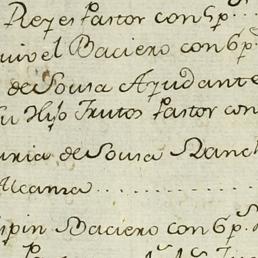 Reyes Pastor con 5 p.s
Baciero con 6 p.s
de Sousa Ayudante
su Hijo Frutos Pastor con
uria de Sousa Ranch
Alcanza ............
spin Baciero con 6 p.s